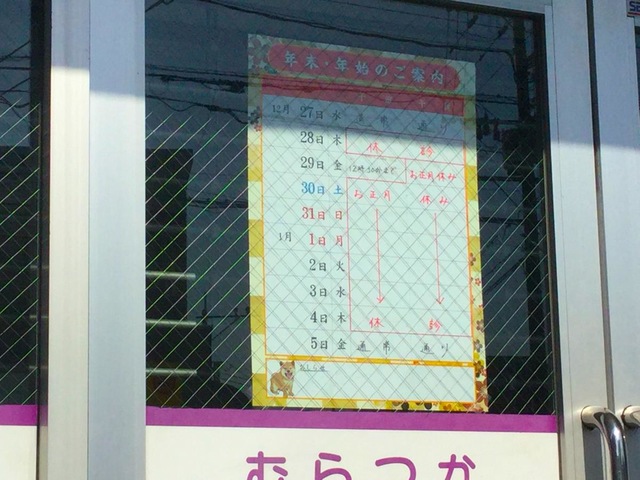 年末・年始のご案内
午前 午後
12月 27日 水 通常 通り
28日 木 休 診
29日 金 12時30分まで お正月休み
30日 土 お正月 休み
31日 日
1月 1日 月
2日 火
3日 水
4日 木 休 診
5日 金 通常 通り
おしらせ
むらつか